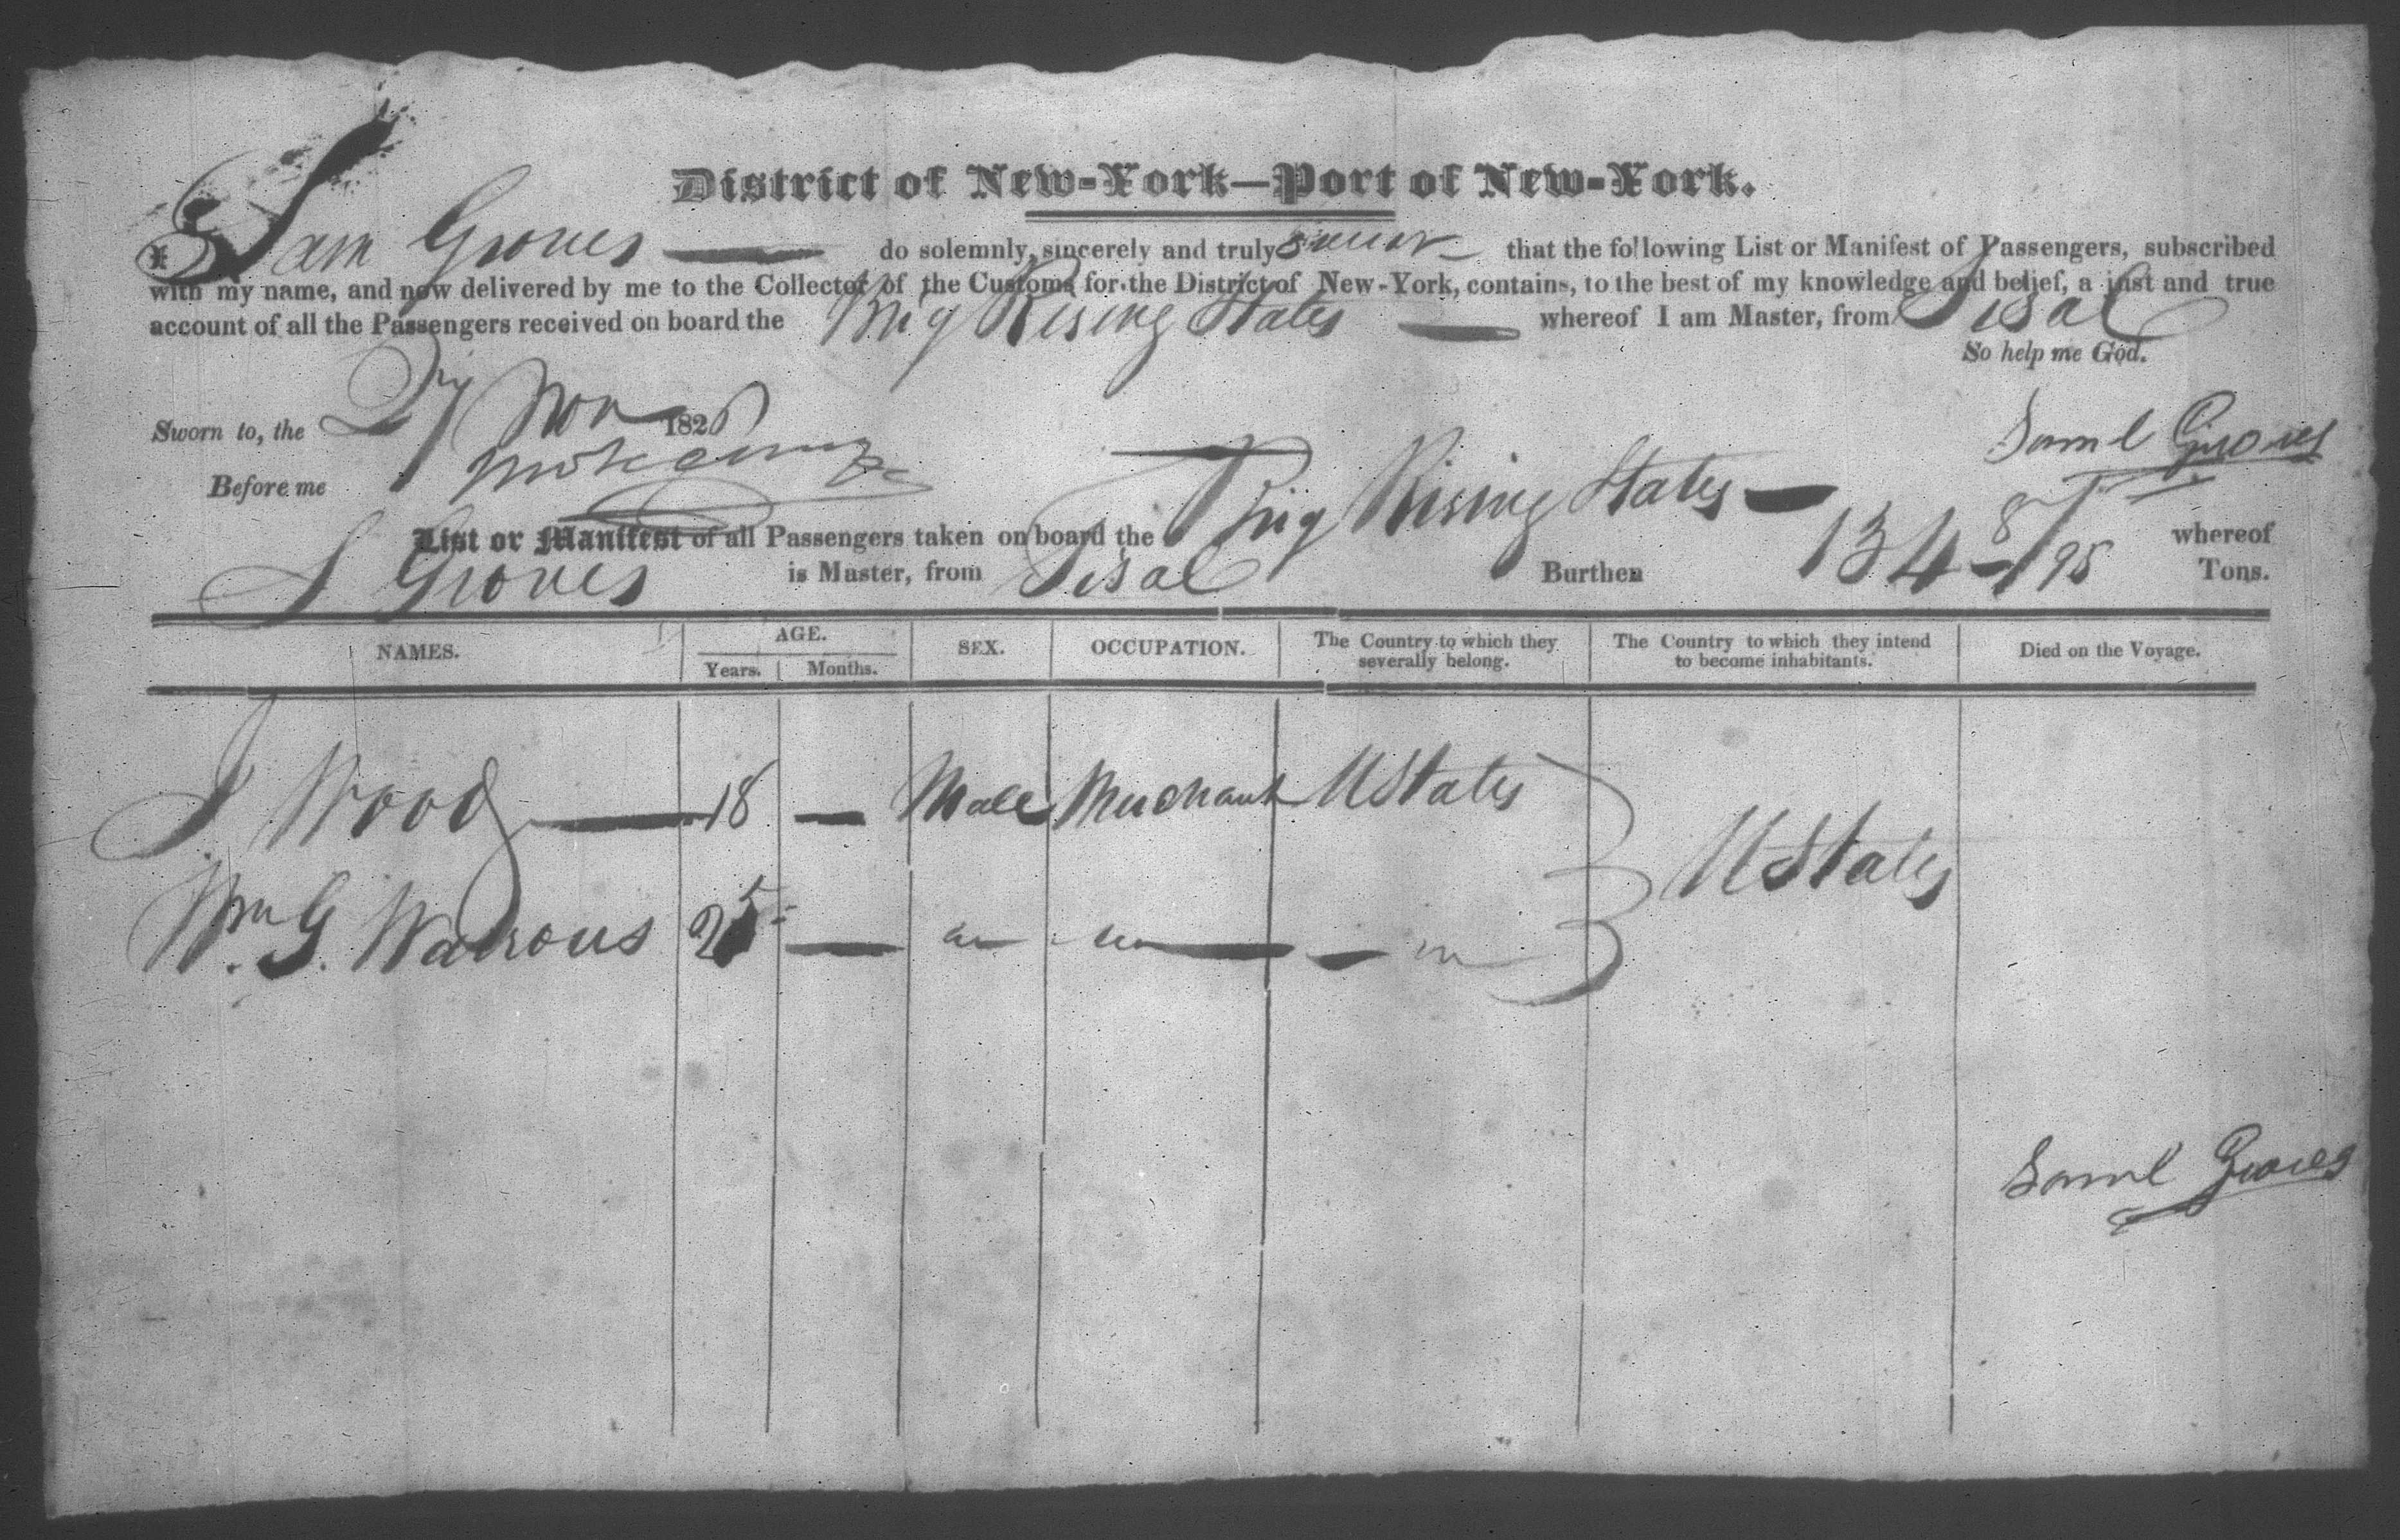 District of New-York—Port of New-York.
I Sam Groves — do solemnly, sincerely and truly swear — that the following List or Manifest of Passengers, subscribed
with my name, and now delivered by me to the Collector of the Customs for the District of New-York, contains, to the best of my knowledge and belief, a just and true
account of all the Passengers received on board the Brig Rising States — whereof I am Master, from Sisal
So help me God.
Sworn to, the 27 Nov 182
Saml Groves
Before me
List or Manifest of all Passengers taken on board the Brig Rising States — whereof
S Groves is Master, from Sisal Burthen 134 - 8/95 Tons.
NAMES. AGE. SEX. OCCUPATION. The Country to which they severally belong. The Country to which they intend to become inhabitants. Died on the Voyage.
Years. Months.
J Wood — 18 — Male Merchant UStates
UStates
Wm G. Watrous 25 — — —
Saml Groves